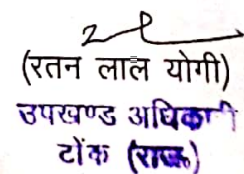 (रतन लाल योगी)
उपखण्ड अधिकारी
टोंक (राज०)